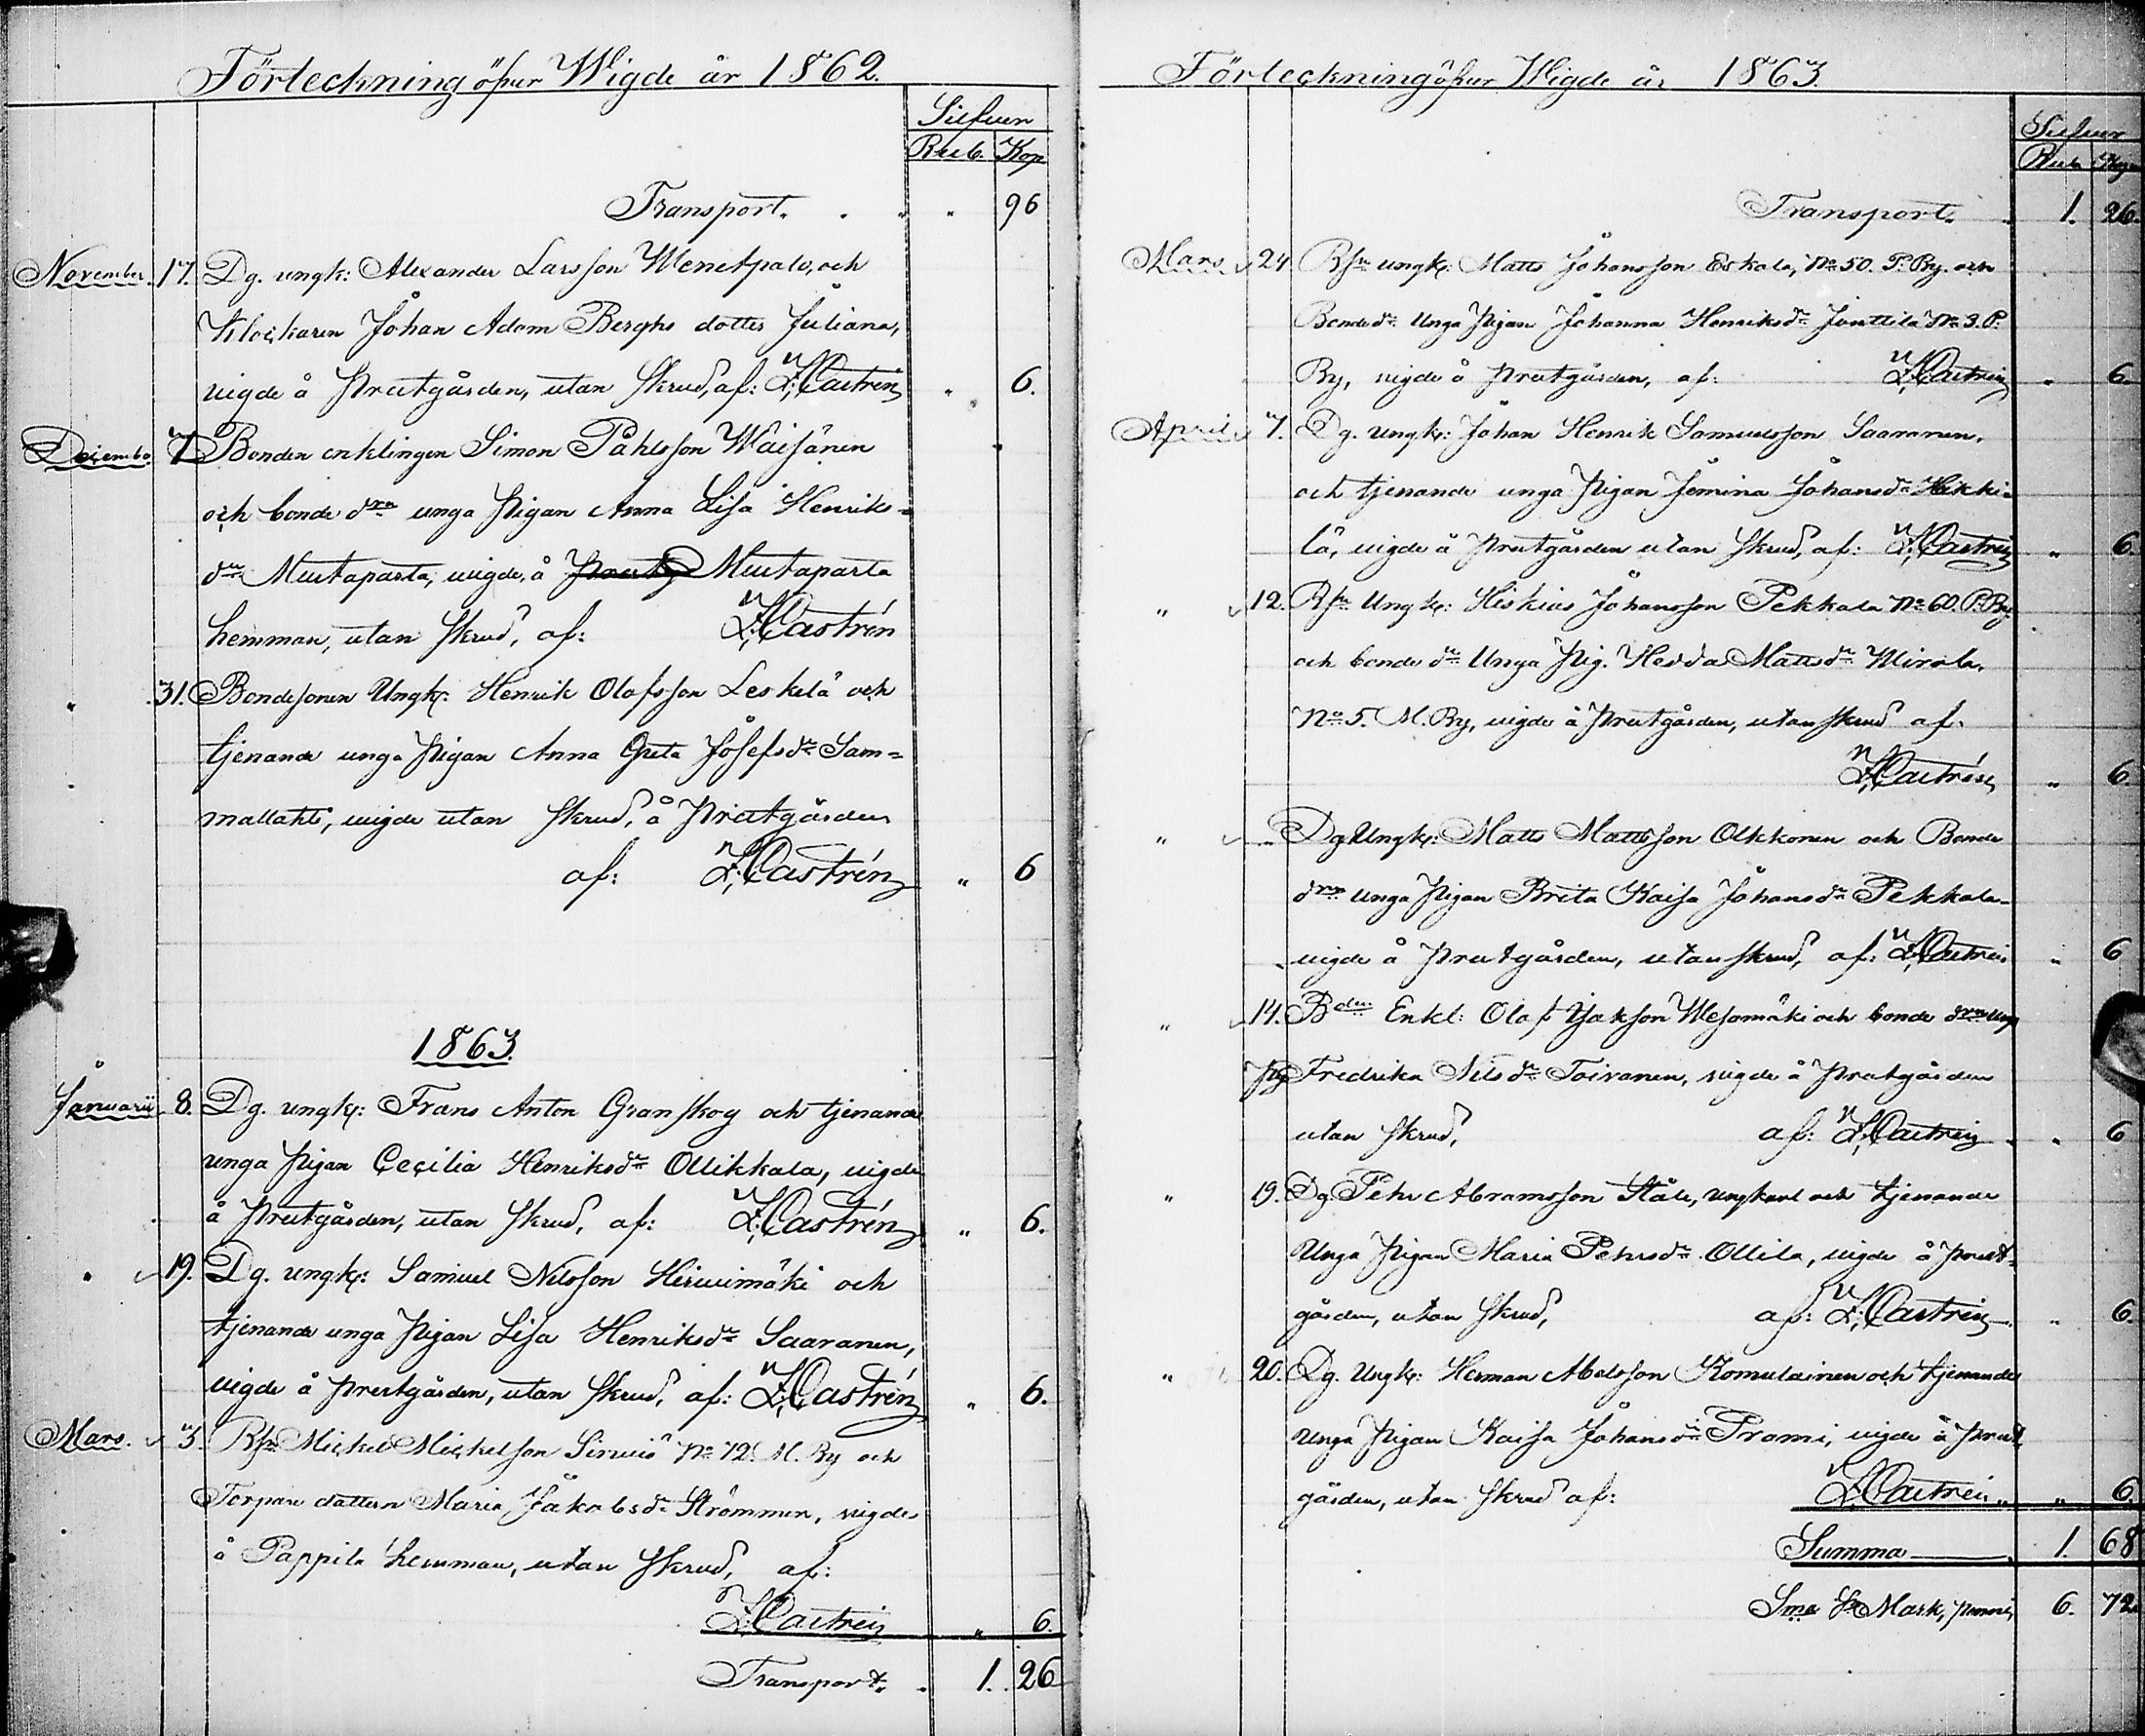 Förteckning öfver Wigde år 1862.
Silfver
Rub. Kop
Transport. . " " 96
November 17. Dg. ungk: Alexander Larsson Wenetpalo, och
Klockaren Johan Adam Berghs dotter Juliana,
vigde å Prestgården, utan skrud, af: F. Castrén " 6.
Decembr 7 Bonden enklingen Simon Påhlsson Wäisänen
och bonde dra unga pigan Anna Lisa Henriks=
dr Mustaparta, vigde, å Prestg Mustaparta
hemman, utan skrud, af: F. Castrén
" 31. Bondesonen Ungk: Henrik Olofsson Leskelä och
tjenande unga pigan Anna Greta Josefsdr Sam=
mallahti, vigde utan skrud, å Prestgården
af: F. Castrén " 6
1863.
Januarii 8. Dg. ungk: Frans Anton Granskog och tjenande
unga pigan Cecilia Henriksdr Ollikkala, vigde
å Prestgården, utan skrud, af: F. Castrén " 6.
" 19. Dg. ungk: Samuel Nilsson Hirvimäki och
tjenande unga pigan Lisa Henriksdr Saaranen,
vigde å prestgården, utan skrud, af: F. Castrén " 6.
Mars. 3. Rsn Mickel Mickelsson Sirviö No 12. M. By och
Torpare dottern Maria Jakobsdr Strömmer, vigde
å Pappila hemman, utan skrud, af:
F. Castrén " 6.
Transport. . 1. 26
Förteckning öfver Wigde år 1863.
Silfver
Rub. Kop
Transport. 1. 26.
Mars 24. Rsn ungk: Matts Johansson Eskola, No 50. P. By. och
Bondedr Unga pigan Johanna Henriksdr Junttila No 3. P.
By, vigde å prestgården, af: F. Castrén " 6
April 7. Dg. ungk: Johan Henrik Samuelsson Saaranen,
och tjenande unga pigan Jemina Johansdr Heikki=
lä, vigde å prestgården utan skrud, af: F. Castrén " 6
" 12. Rsn Ungk: Hiskias Johansson Pekkala No 60. P. By
och bonde dr Unga pig. Hedda Mattsdr Mirola,
No 5. M. By, vigde å prestgården, utan skrud af:
F. Castrén " 6.
" " Dg Ungk: Matts Mattsson Olkkonen och Bonde
dra unga pigan Brita Kaisa Johansdr Pekkala
vigde å prestgården, utan skrud, af: F. Castrén " 6
" 14. Bden Enkl: Olof Isakson Wesamäki och bonde dra Ung
pig Fredrika Nilsdr Toivanen, vigde å prestgården
utan skrud, af: F. Castrén " 6
" 19. Dg. Pehr Abramsson Ståle, ungkarl och tjenande
Unga pigan Maria Pehrsdr Ollila, vigde å prest=
gården, utan skrud, af: F. Castrén " 6.
" 20. Dg. Ungk: Herman Abelsson Komulainen och tjenande
unga pigan Kaisa Johansdr Prami, vigde å prest
gården, utan skrud af: F. Castrén " " 6.
Summa 1. 68
Sma Sr Mark, penni 6. 72